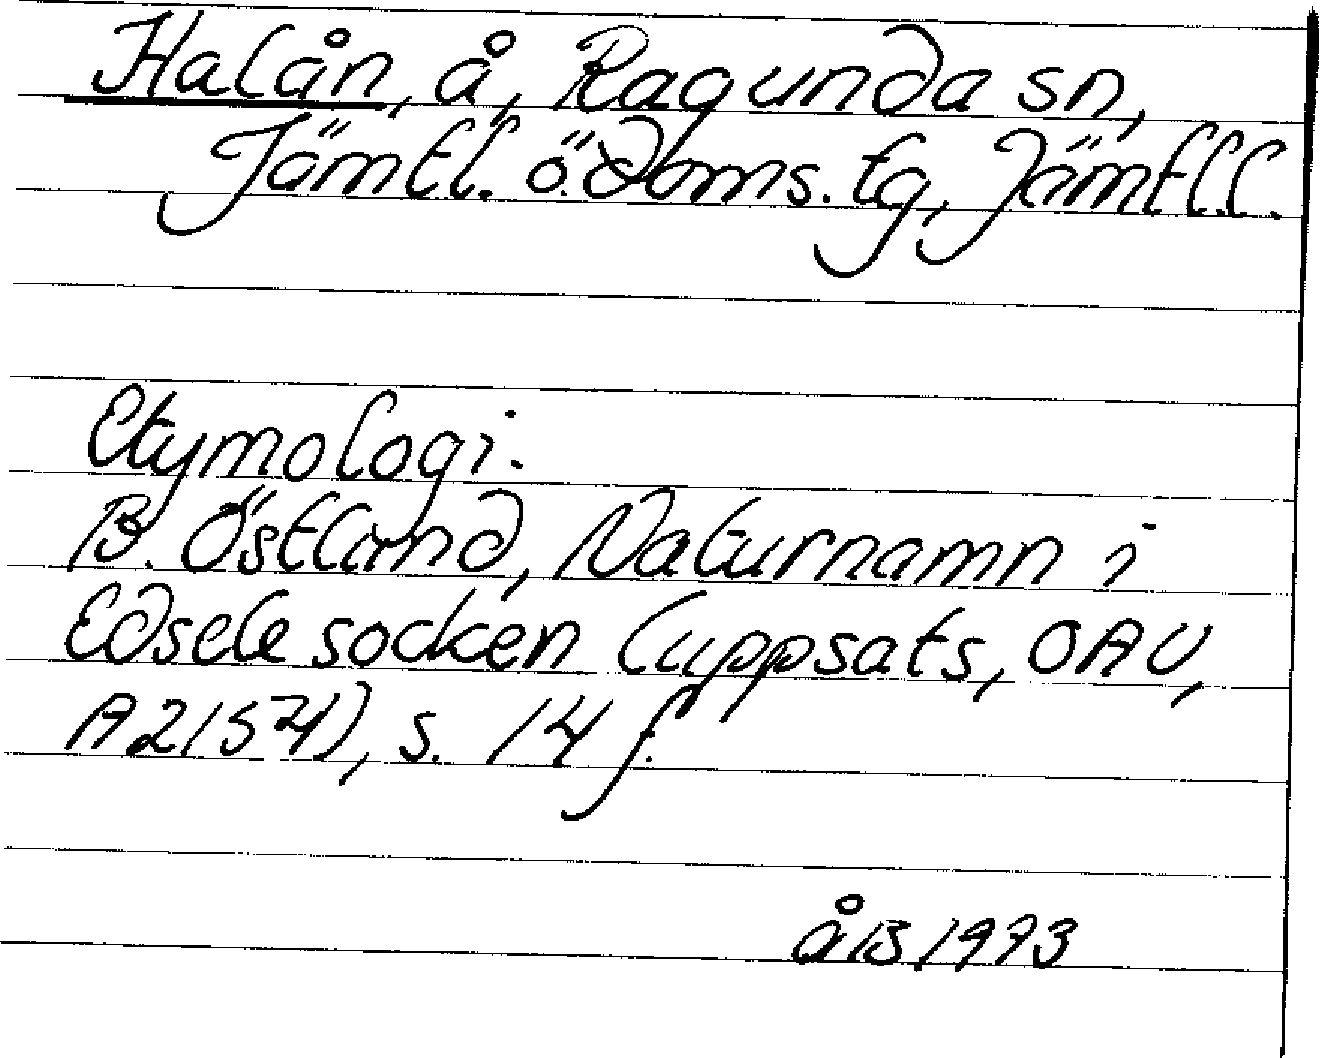 Halån, å, Ragunda sn,
Jämtl. ö. doms. tg, Jämtl. l.
Etymologi.
B. Östlund, Naturnamn i
Edsele socken (uppsats, OAU,
A2154), s. 14 f.
ÅB 1973